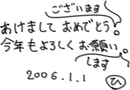 あけまして おめでとう
ございます。
今年もよろしくお願い
します。
2006.1.1
ひ